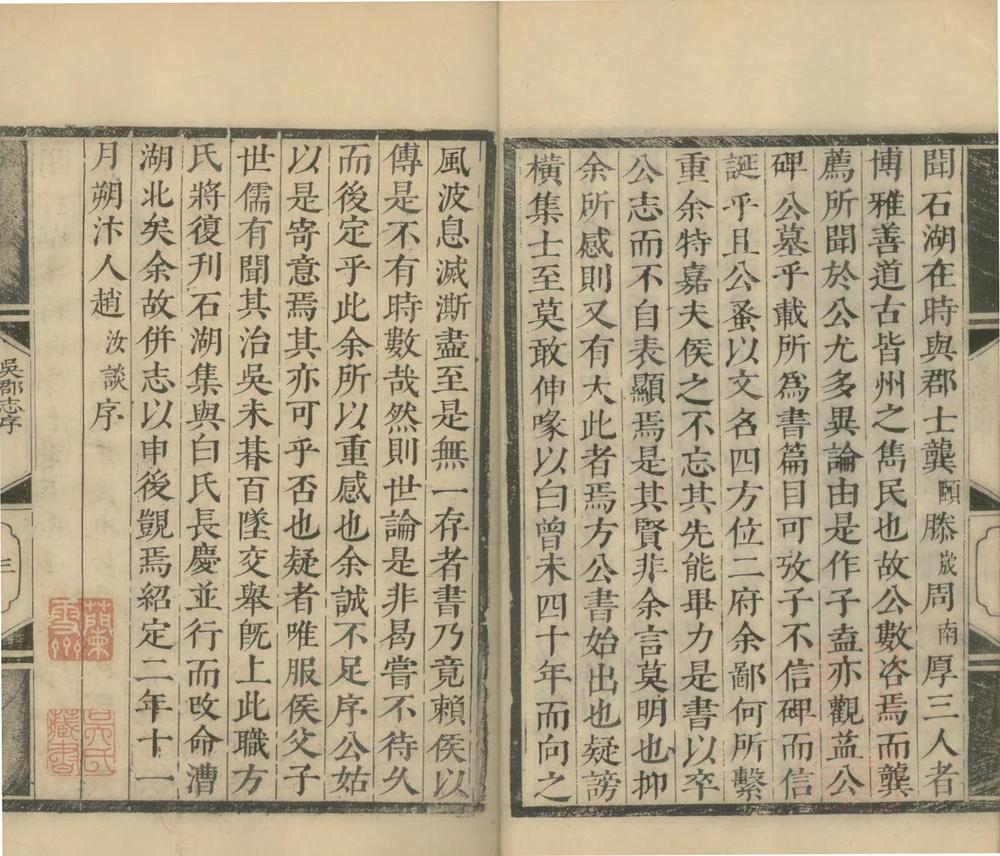 聞石湖在時與郡士龔頤滕宬周南厚三人者
博雅善道古皆州之雋民也故公數咨焉而龔
薦所聞於公尤多異論由是作子盍亦觀益公
碑公墓乎載所爲書篇目可攷子不信碑而信
誕乎且公蚤以文名四方位二府余鄙何所繫
重余特嘉夫侯之不忘其先能畢力是書以卒
公志而不自表顯焉是其賢非余言莫明也抑
余所感則又有大此者焉方公書始出也疑謗
橫集士至莫敢伸喙以白曾未四十年而向之
風波息滅澌盡至是無一存者書乃竟賴侯以
傳是不有時數哉然則世論是非曷嘗不待久
而後定乎此余所以重感也余誠不足序公姑
以是寄意焉其亦可乎否也疑者唯服侯父子
世儒有聞其治吳未朞百墜交舉旣上此職方
氏將復刊石湖集與白氏長慶並行而改命漕
湖北矣余故併志以申後覬焉紹定二年十一
月朔汴人趙汝談序
吳郡志序
三
吳氏
藏書